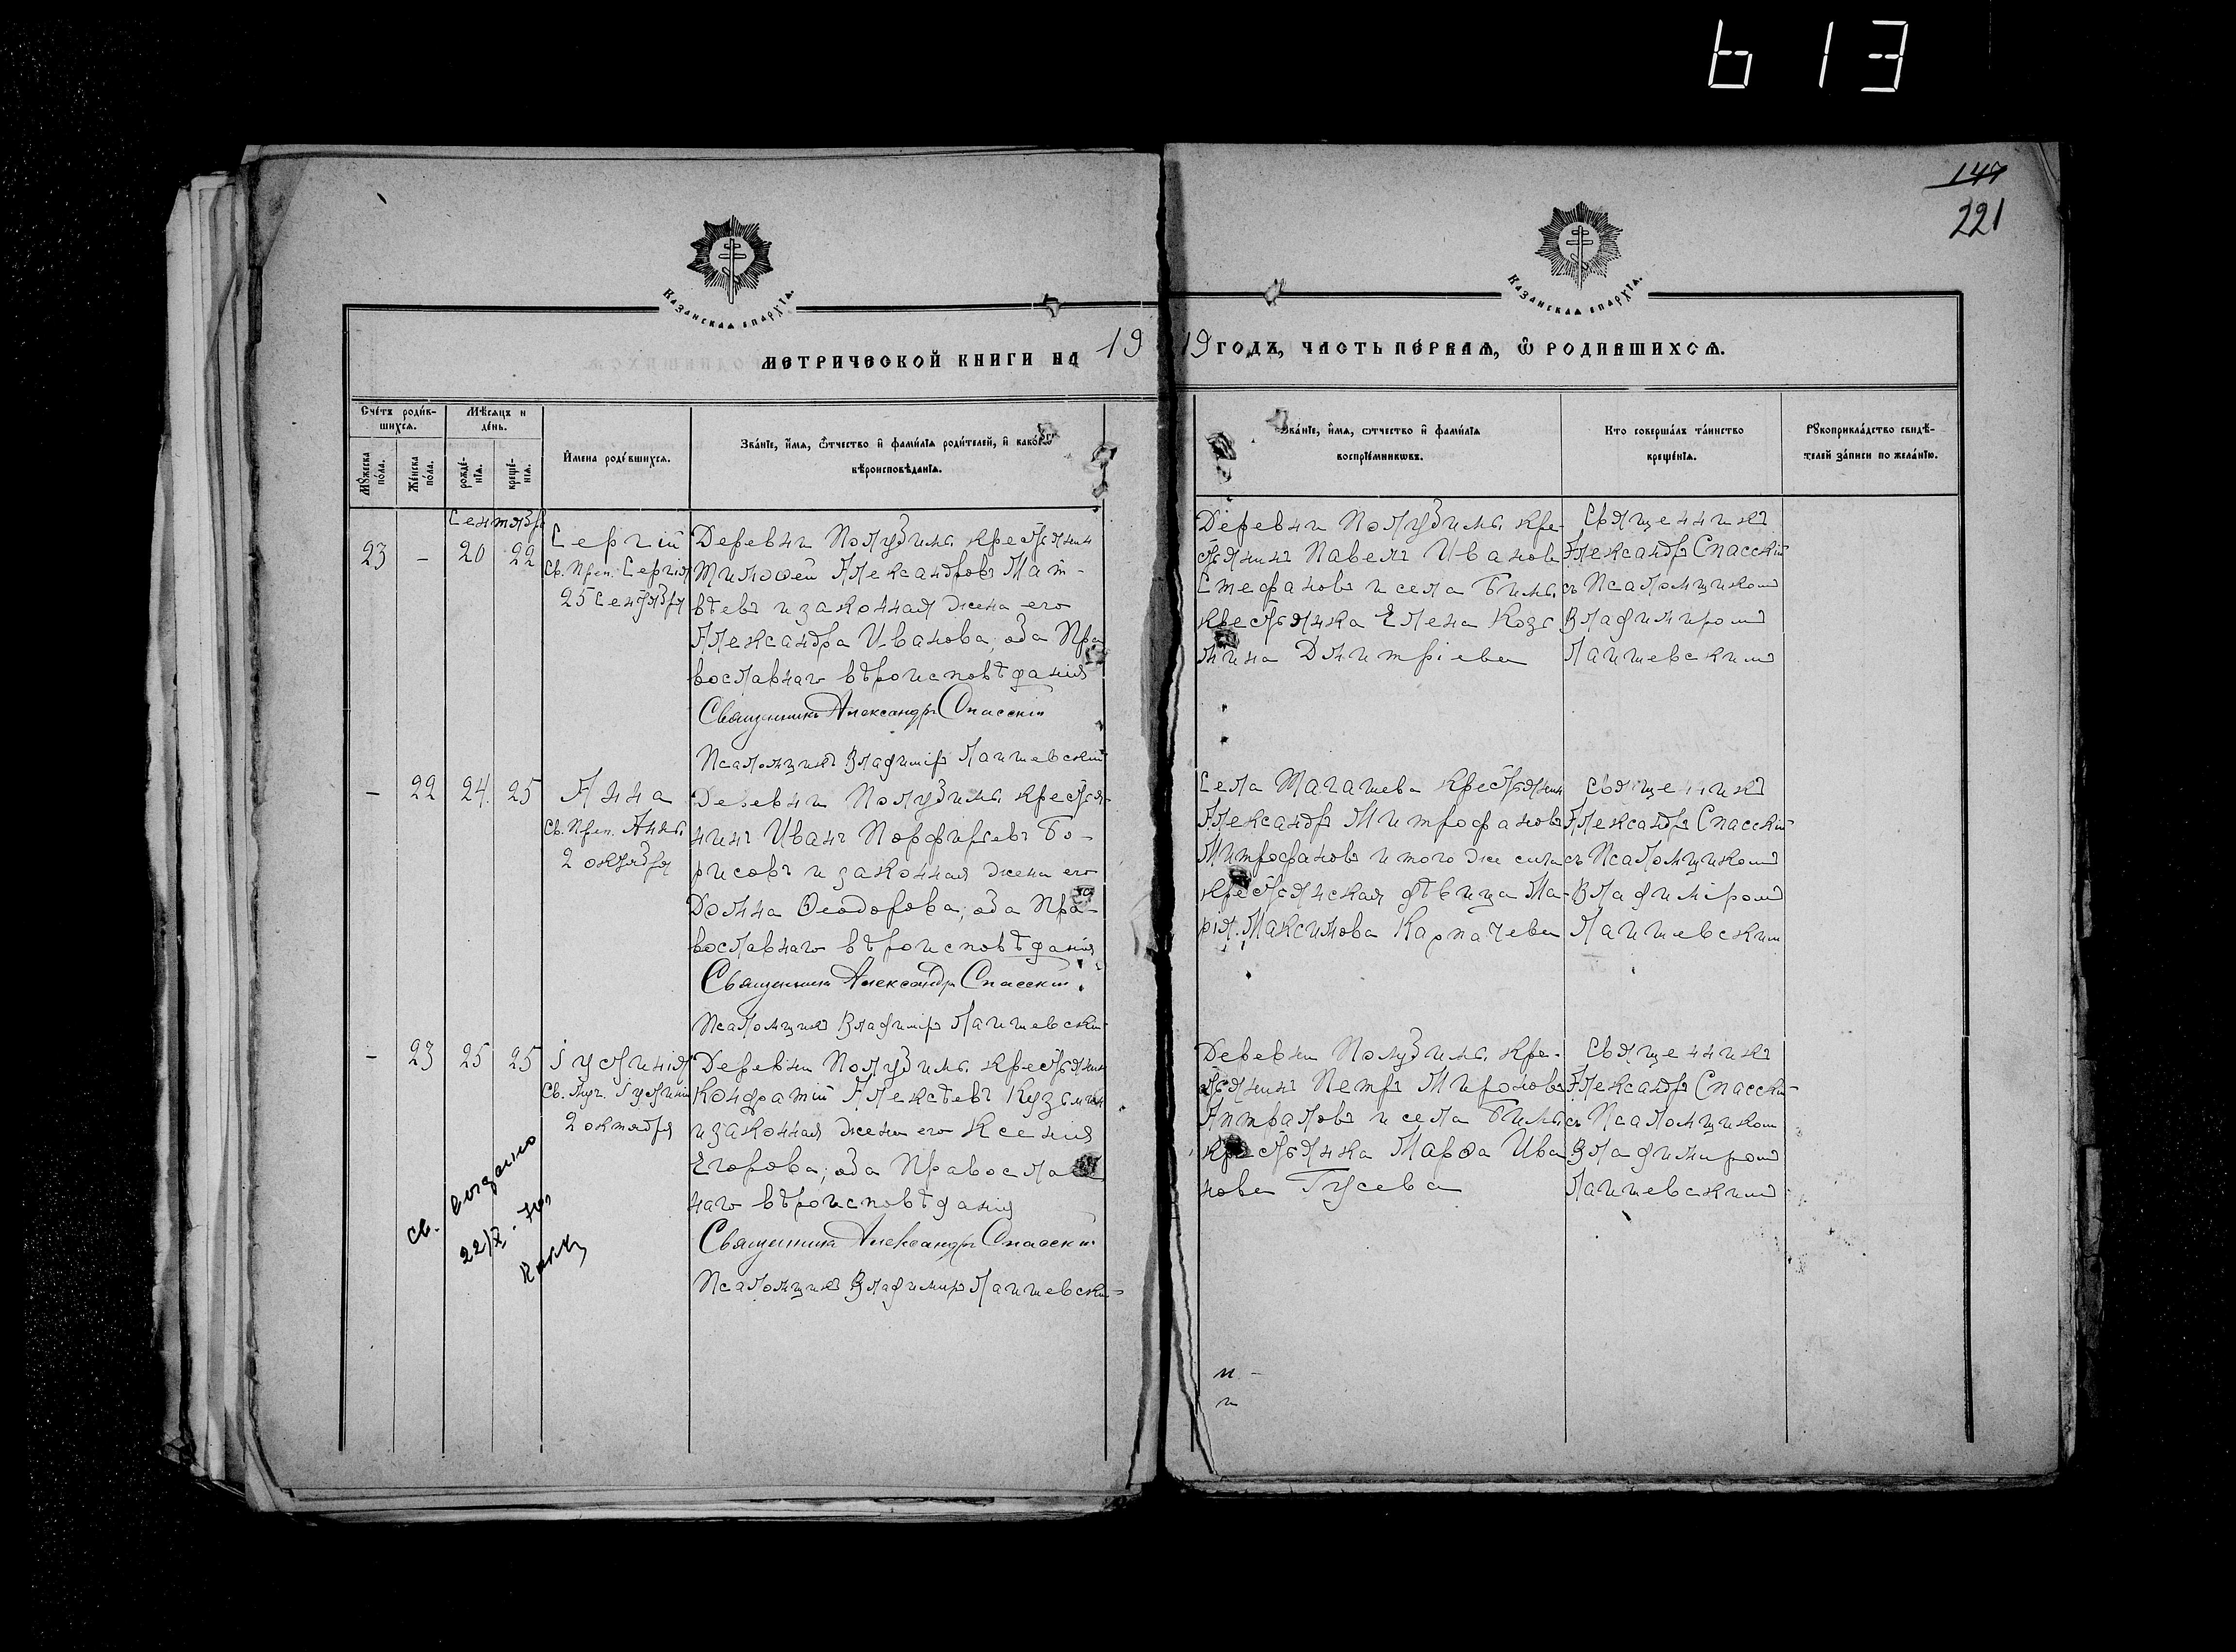 613
147
221
Казанская епархїа.
Казанская епархїа.
метрической книги на 1919 годъ, часть первая, ѡ родившихся.
Счетъ родившихся.
Мѣсяцъ и день.
Мужеска пола.
Женска пола.
рожденїя.
крещенїя.
Имена родившихся.
Званїе, имя, отчество и фамилїя родителей, и какого
вѣроисповѣданїя.
Званїе, имя, отчество и фамилїя
воспрїемниковъ.
Кто совершалъ таинство
крещенїя.
Рукоприкладство свидѣ-
телей записи по желанїю.
Сентябрь
23 - 20 22
Сергій
Св. Преп. Сергія
25 Сентября
Деревни Полудина крестьянин
Тимофей Александровъ Мат-
вѣевъ и законная жена его
Александра Иванова; оба Пра
вославнаго вѣроисповѣданія
Священникъ Александръ Спасскій
Псаломщикъ Владиміръ Лаишевскій
Деревни Полудина кре-
стьянинъ Павелъ Иванов
Стефановъ и села
крестьянка Елена
Дмитріева
Священникъ
Александръ Спасскій
съ Псаломщикомъ
Владимиромъ
Лаишевскимъ
- 22 24 25
Анна
Св. Преп. Анны
2 октября
Деревни Полудина крестья-
нинъ Иванъ Порфирьевъ Бо-
рисовъ и законная жена его
Домна Ѳеодорова; оба Пра-
вославнаго вѣроисповѣданія
Священникъ Александръ Спасскій
Псаломщикъ Владиміръ Лаишевскій
Села Тагашева крестьянин
Александръ Митрофановъ
Митрофановъ и того же села
крестьянская дѣвица Ма-
рія Максимова Карпачева
Священникъ
Александръ Спасскій
съ Псаломщикомъ
Владиміромъ
Лаишевским
- 23 25 25
Іустинія
Св. Муч. Іустиніи
2 октября
Деревни Полудина крестьянин
Кондратій Алексѣевъ Кузьмин
и законная жена его Ксенія
Егорова; оба Православ
наго вѣроисповѣданія
Священникъ Александръ Спасскій
Псаломщикъ Владимиръ Лаишевскій
Деревни Полудина кре-
стьянинъ Петръ Мироновъ
и села
крестьянка Марѳа Ива
нова Гусева
Священникъ
Александръ Спасскій
съ Псаломщиком
Владимиромъ
Лаишевскимъ
св. выдано
22/X